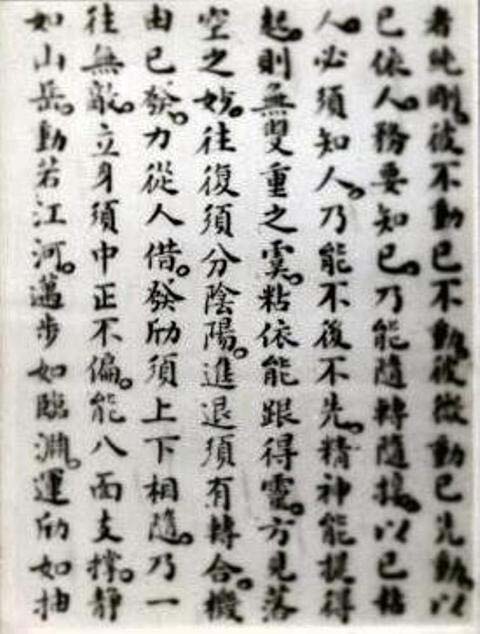 者純剛。彼不動己不動。彼微動己先動。以
己依人。務要知己。乃能隨轉隨接。以己粘
人。必須知人。乃能不後不先。精神能提得
起。則無雙重之虞。粘依能跟得靈。方見落
空之妙。往復須分陰陽。進退須有轉合。機
由己發。力從人借。發劤須上下相隨。乃一
往無敵。立身須中正不偏。能八面支撐。靜
如山岳。動若江河。邁步如臨淵。運劤如抽